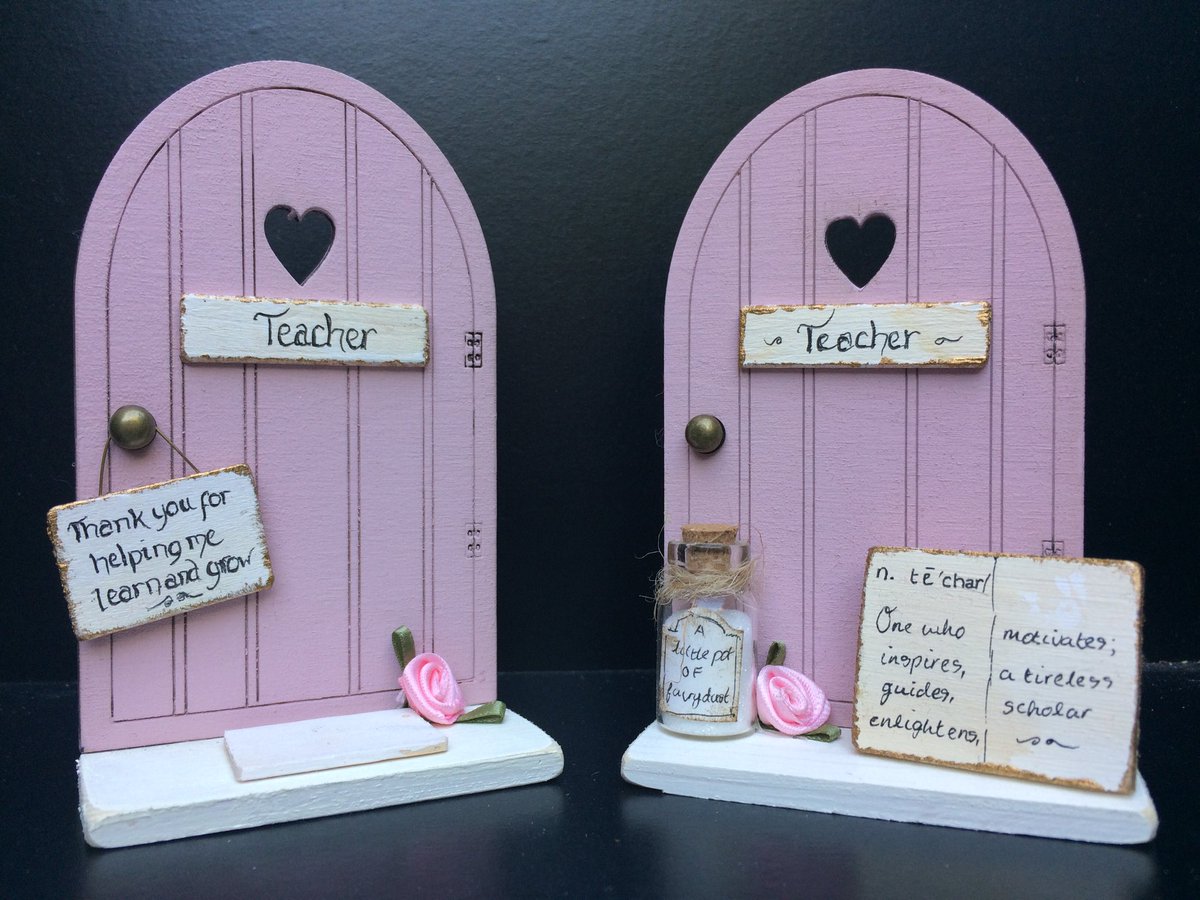 Teacher
Thank you for
helping me
learn and grow
Teacher
A
little pot
OF
fairydust
n. tē'char/
One who
inspires,
guides,
enlightens,
motivates;
a tireless
scholar